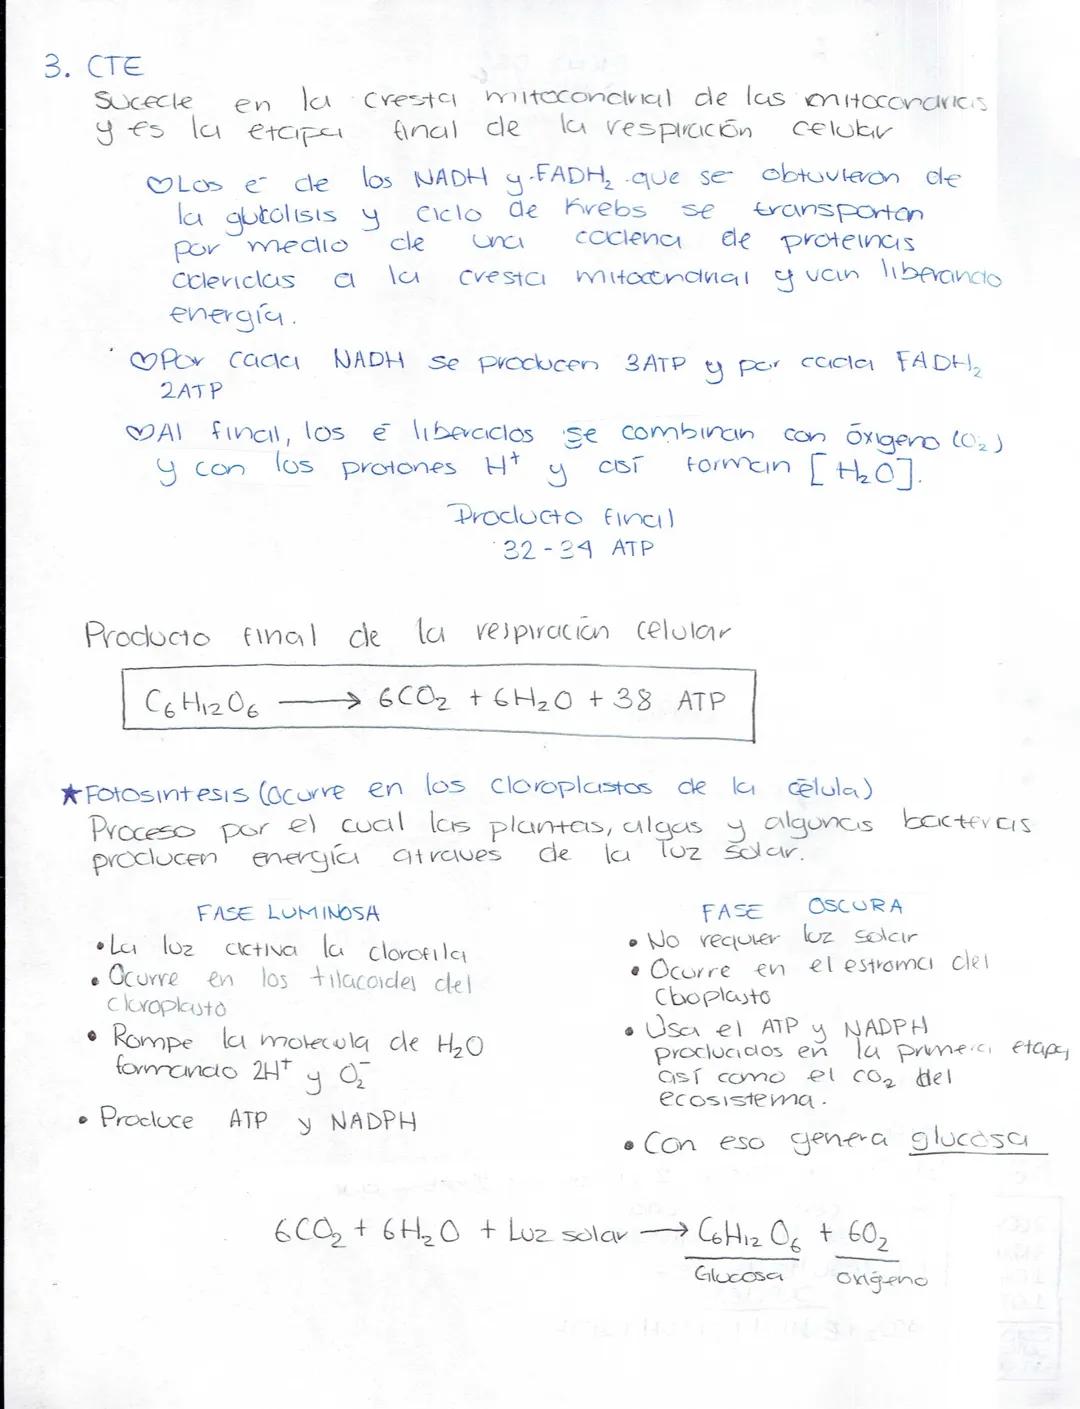 3. CTE
Sucede en la cresta mitocondrial de las mitocondrias
y es la etapa final de la respiración celular
♡Los e⁻ de los NADH y FADH₂ que se obtuvieron de
la glucolisis y ciclo de Krebs se transportan
por medio de una cadena de proteinas
aderidas a la cresta mitocondrial y van liberando
energía.
♡Por cada NADH se producen 3ATP y por cada FADH₂
2ATP
♡Al final, los e⁻ liberados se combinan con óxigeno (O₂)
y con los protones H⁺ y así forman [H₂O].
Producto final
32-34 ATP
Producto final de la respiración celular
C₆H₁₂O₆ ⟶ 6CO₂ + 6H₂O + 38 ATP
★Fotosintesis (Ocurre en los cloroplastos de la célula)
Proceso por el cual las plantas, algas y algunas bacterias
producen energía atraves de la luz solar.
FASE LUMINOSA
• La luz activa la clorofila
• Ocurre en los tilacoides del
cloroplasto
• Rompe la molecula de H₂O
formando 2H⁺ y O₂⁻
• Produce ATP y NADPH
FASE OSCURA
• No requier luz solar
• Ocurre en el estroma del
Cloplasto
• Usa el ATP y NADPH
producidos en la primera etapa,
así como el CO₂ del
ecosistema.
• Con eso genera glucosa
6CO₂ + 6H₂O + Luz solar ⟶ C₆H₁₂O₆ + 6O₂
Glucosa oxígeno